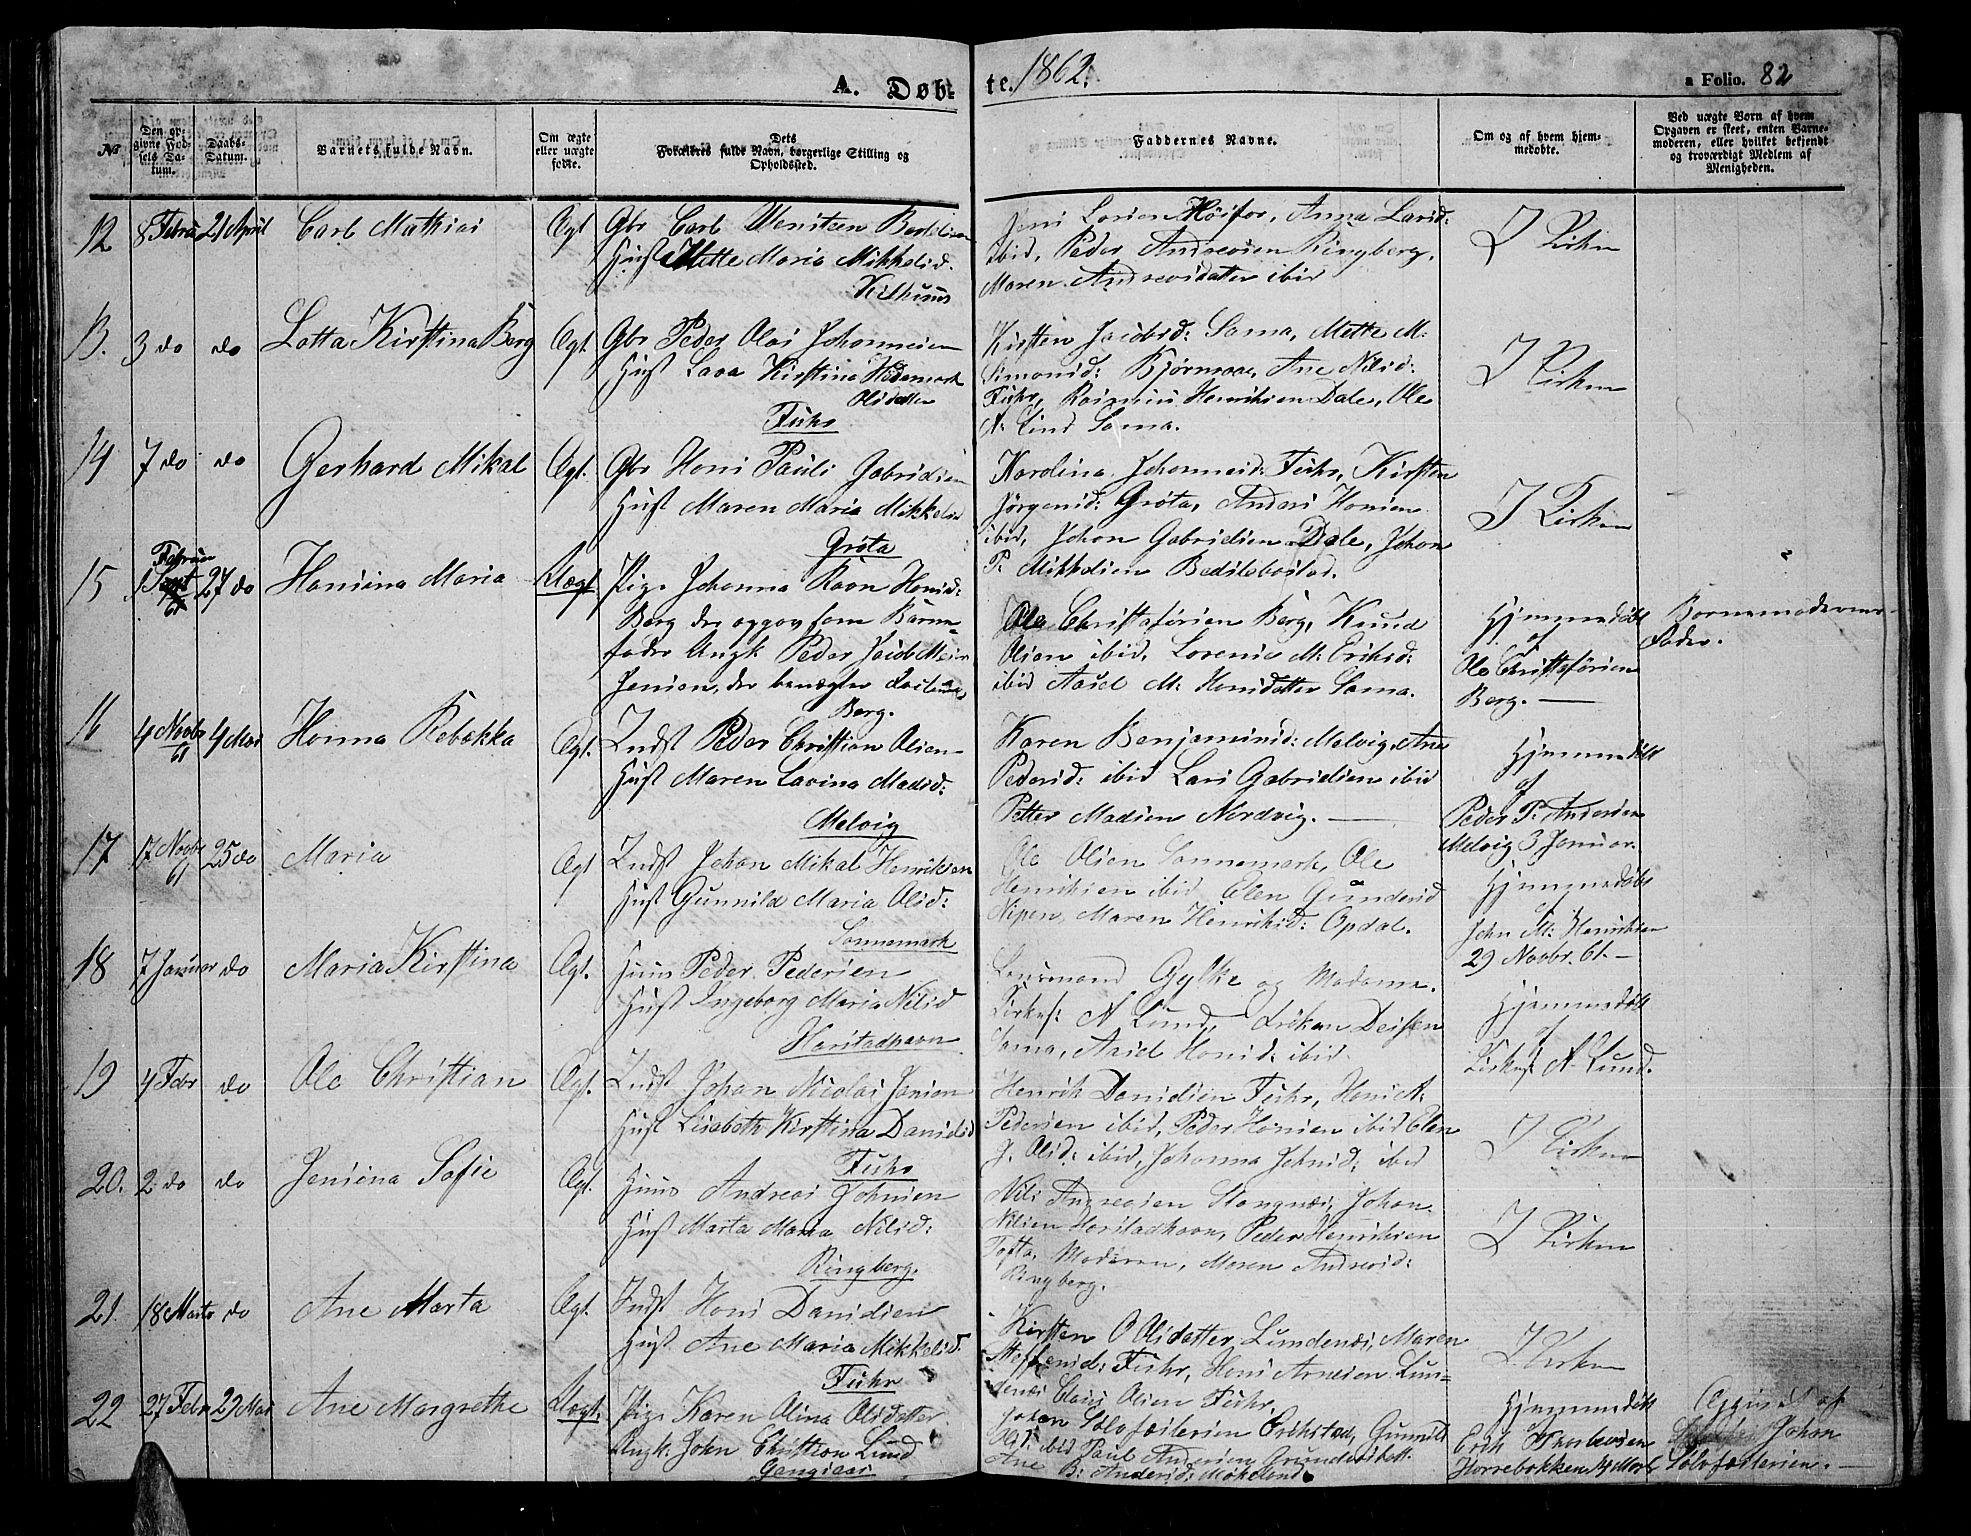 A. Døbte. 1862. a Folio. 82
No
Den opgivne Fødsels Datum.
Daabs-Datum.
Barnets fulde Navn.
Om ægte eller uægte fødte.
Dets Forældres fulde Navn, borgerlige Stilling og Opholdssted.
Faddernes Navne.
Om og af hvem hjemmedøbte.
Ved uægte Born af hvem Opgaven er skeet, enten Barnemoderen, eller hvilket bekjendt og troværdigt Medlem af Menigheden.
12 8 Febru 21 April Carl Mathias Ægt Gbr Carl
Hust Mette Maria Mikkelsd.
Jens Larsen Høifor, Anna Larsd:
ibid, Peder Andreasen Ringberg,
Maren Andreasdatter ibid
I Kirken
13. 3 do do Lotta Kirstina Berg Ægt. Gbr Peder Olai Johannesen
Hust Lava Kirstina Hedemark
Olsdatter
Fuhr
Kirsten Jacobsd: Sama, Mette M:
Simonsd: Bjørnraa, Ane Nilsd:
Fuhr, Henriksen Dale, Ole
N: Lind Sama.
I Kirken
14 7 do do Gerhard Mikal Ægt. Gbr Hans Pauli Gabrielsen
Hust Maren Maria Mikkelsd
Grøta
Karolina Johannesd: Fuhr, Kirsten
Jørgensd: Grøta, Anders Hansen
ibid, Johan Gabrielsen Dale, Johan
P. Mikkelsen
I Kirken
15 1 Februar 61 27 do Hansina Maria Uægt Pige Johanna Ravn Hansd:
Berg der opgav som Barne-
fader Ungk Peder Jacob
Jensen, der benægter
Berg.
Ole Christoforsen Berg, Knud
Olsen ibid, Lorense M: Eriksd:
ibid Aasel M: Hansdatter Sama.
Hjemmedøbt
af
Ole Christoforsen
Berg.
Barnemoderens
Fader.
16 4 Novbr 61 4 Mai Hanna Rebekka Ægt. Indst Peder Christian Olsen
Hust Maren Lavina Madsd:
Melvig
Karen Benjaminsd: Melvig, Ane
Pedersd: ibid Lars Gabrielsen ibid
Petter Madsen Nordvig.
Hjemmedøbt
af
Peder P. Andersen
Melvig 3 Januar.
17 17 Novbr 61 25 do Maria Ægt Indst Johan Mikal Henriksen
Hust Gunnild Maria Olsd:
Sannemark
Ole Olsen Sannemark, Ole
Henriksen ibid, Elen Gundersd
Nipen, Maren Henriksd: Opdal.
Hjemmedøbt
af
John M: Henriksen
29 Novbr. 61.
18 7 Januar do Maria Kirstina Ægt. Huus Peder Pedersen
Hust Ingeborg Maria Nilsd
Harstadhavn
Lensmand Gylke og Madame.
Kirkes: N Lund, Frøken
Sama, Aasel Hansd: ibid
Hjemmedøbt
af
Kirkes N. Lund.
19 4 Febr do Ole Christian Ægt. Indst Johan Nicolai Jensen
Hust Lisabeth Kirstina Danielsd
Fuhr
Henrik Danielsen Fuhr, Hans A.
Pedersen ibid, Peder Hansen ibid Elen
J. Olsd: ibid, Johanna Johnsd: ibid
I Kirken
20. 2 do do Jensina Sofie Ægt. Huus Andreas Johnsen
Hust Marta Maria Nilsd:
Ringberg.
Nils Andreasen Stangnæs, Johan
Nilsen Harstadhavn, Peder Henriksen
Tofta, Moderen, Maren Andreasd:
Ringberg.
I Kirken
21. 18 Marts do Ane Marta Ægt. Indst Hans Danielsen
Hust Ane Maria Mikkelsd.
Fuhr
Kirsten O Olsdatter Lundenæs, Maren
Steffensd: Fuhr, Hans Arnesen Lun-
denæs Claus Olsen Fuhr.
I Kirken
22 27 Febr 29 Mai Ane Margrethe Uægt. Pige Karen Olina Olsdatter
Ungk. John Christian Lund
Gangsaas
Johan Solofestersen Erikstad, Gunnild
Olsd: ibid Paul Andersen
Ane B: Andersd: Møkeland.
Hjemmedøbt
af
Erik
Horrebakken 14 Marts
Opgivet af
Johan
Solofestersen.